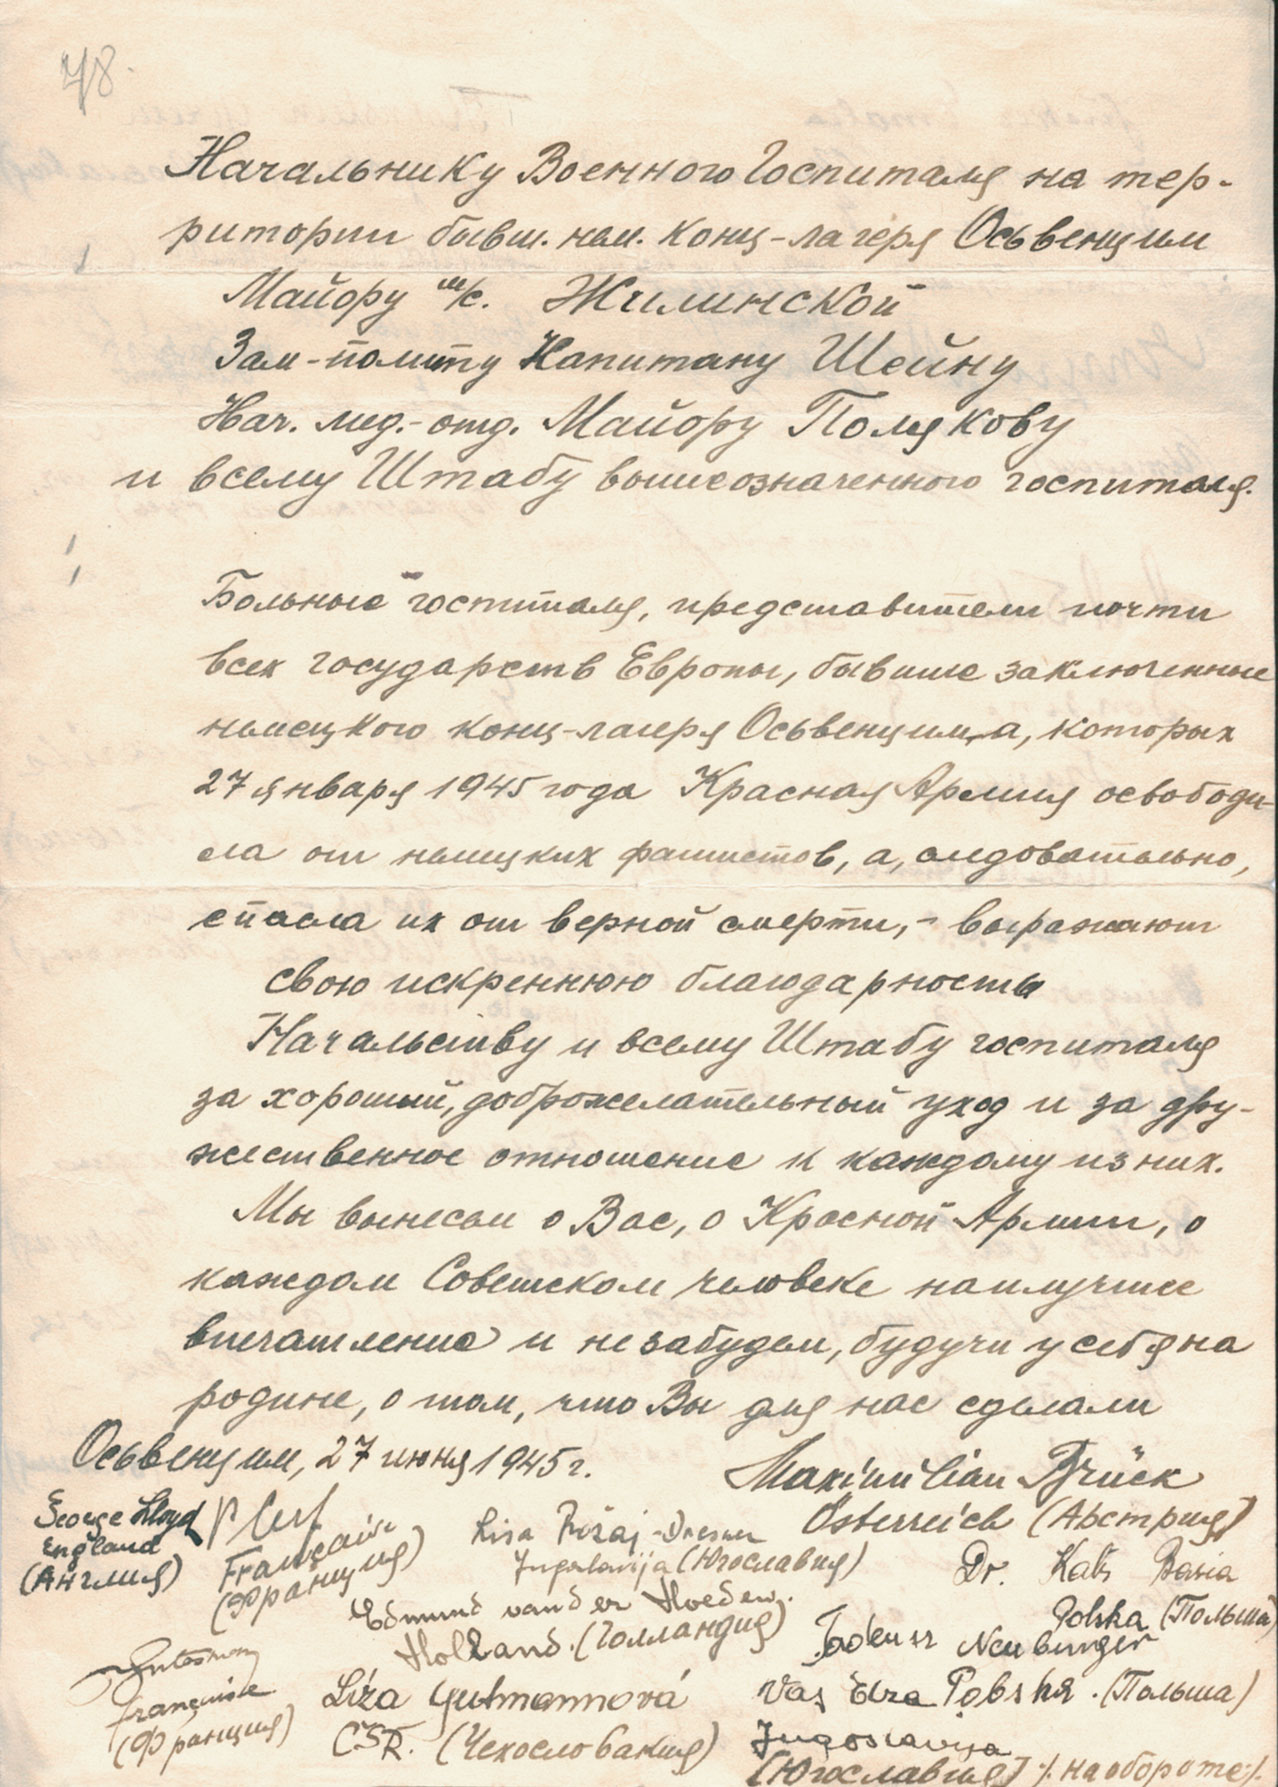 78.
Начальнику Военного Госпиталя на тер-
ритории бывш. нем. конц-лагеря Осьвенцим
Майору м/с. Жилинской
Зам-политу Капитану Шейну
Нач. мед.-отд. Майору Полякову
и всему Штабу вышеозначенного госпиталя.
Больные госпиталя, представители почти
всех государств Европы, бывшие заключенные
немецкого конц-лагеря Осьвенцим,а, которых
27 января 1945 года Красная Армия освободи-
ла от немецких фашистов, а, следовательно,
спасла их от верной смерти, - выражают
свою искреннюю благодарность
Начальству и всему Штабу госпиталя
за хороший, доброжелательный уход и за дру-
жественное отношение к каждому из них.
Мы вынесем о Вас, о Красной Армии, о
каждом Советском человеке наилучшее
впечатление и не забудем, будучи у себя на
родине, о том, что Вы для нас сделали
Осьвенцим, 27 июня 1945 г.
Maximilian Brück
Österreich (Австрия)
George Lloyd
England
(Англия)
Française
(Франция)
Lisa
Jugoslavija (Югославия)
Dr. Kats Basia
Polska (Польша)
Edmund van der Hoeden.
Holland. (Голландия)
Tadeusz Neuburger
Polska. (Польша)
française
(Франция)
Líza Gutmannová
ČSR. (Чехословакия)
Vaj
Jugoslavija
(Югославия) ·/. на обороте ·/.